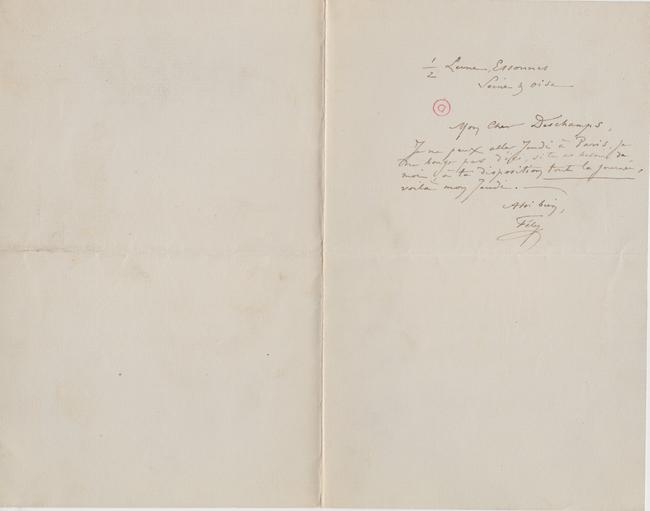 1/2 Lune, Essonnes
Seine & Oise
Mon Cher Deschamps,
Je ne peux aller Jeudi à Paris. Je
ne bouge pas d'ici, si tu as besoin de
moi, à ta disposition toute la journée,
voilà mon Jeudi. —
A toi bien,
Fély